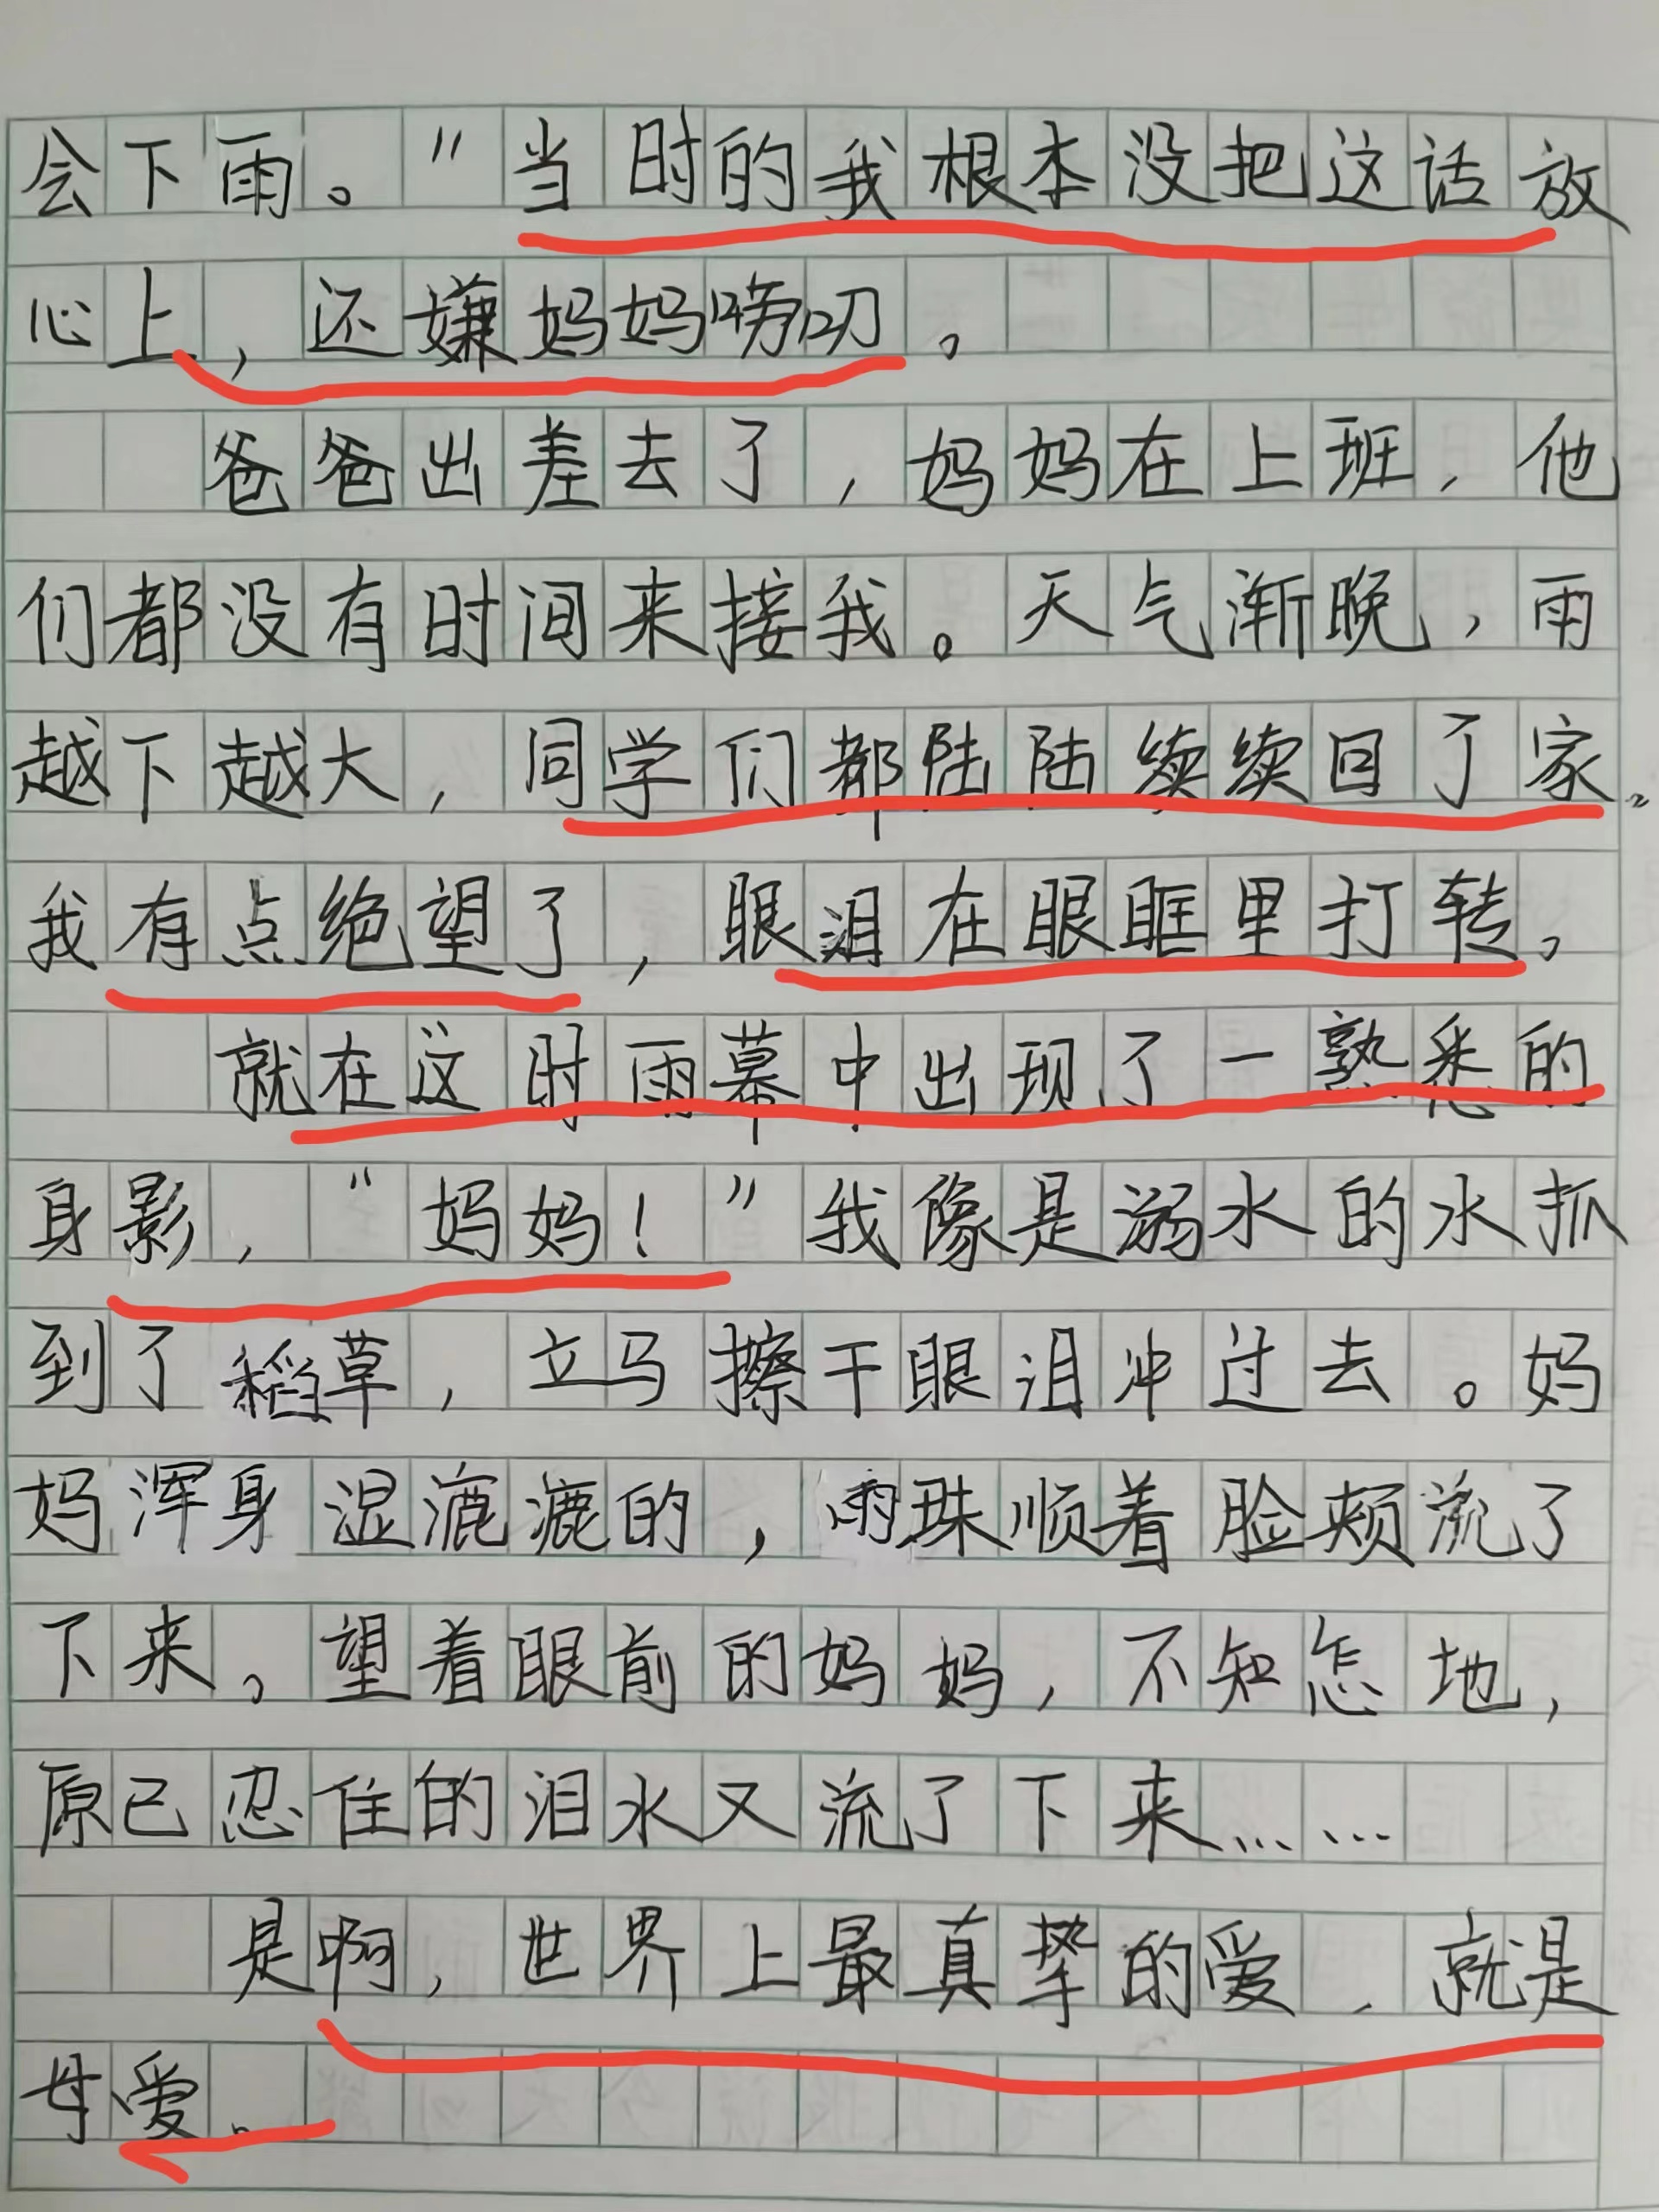 会下雨。”当时的我根本没把这话放
心上，还嫌妈妈唠叨。
爸爸出差去了，妈妈在上班，他
们都没有时间来接我。天气渐晚，雨
越下越大，同学们都陆陆续续回了家。
我有点绝望了，眼泪在眼眶里打转。
就在这时雨幕中出现了一熟悉的
身影，“妈妈！”我像是溺水的水抓
到了稻草，立马擦干眼泪冲过去。妈
妈浑身湿漉漉的，雨珠顺着脸颊流了
下来。望着眼前的妈妈，不知怎地，
原已忍住的泪水又流了下来……
是啊，世界上最真挚的爱，就是
母爱。